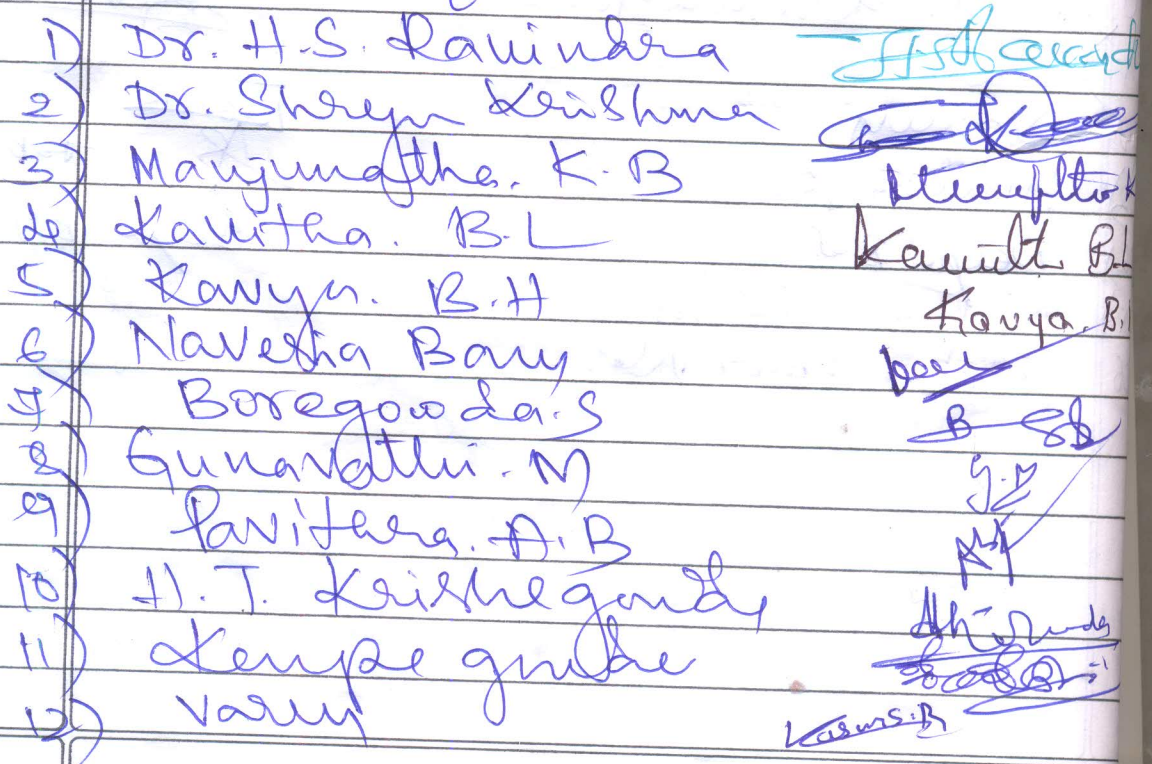 1) Dr. H.S. Ravindra
2) Dr. Shreya Krishna
3) Manjunatha. K.B
4) Kavitha. B.L Kavitha B.L
5) Kavya. B.H Kavya. B.
6) Navesha Bary
7) Boregowda.S
8) Gunavathi.M G.M
9) Pavithra. A.B
10) H.T. Krishegowda
11) Kempe gowda
12) Varun Varun S.B